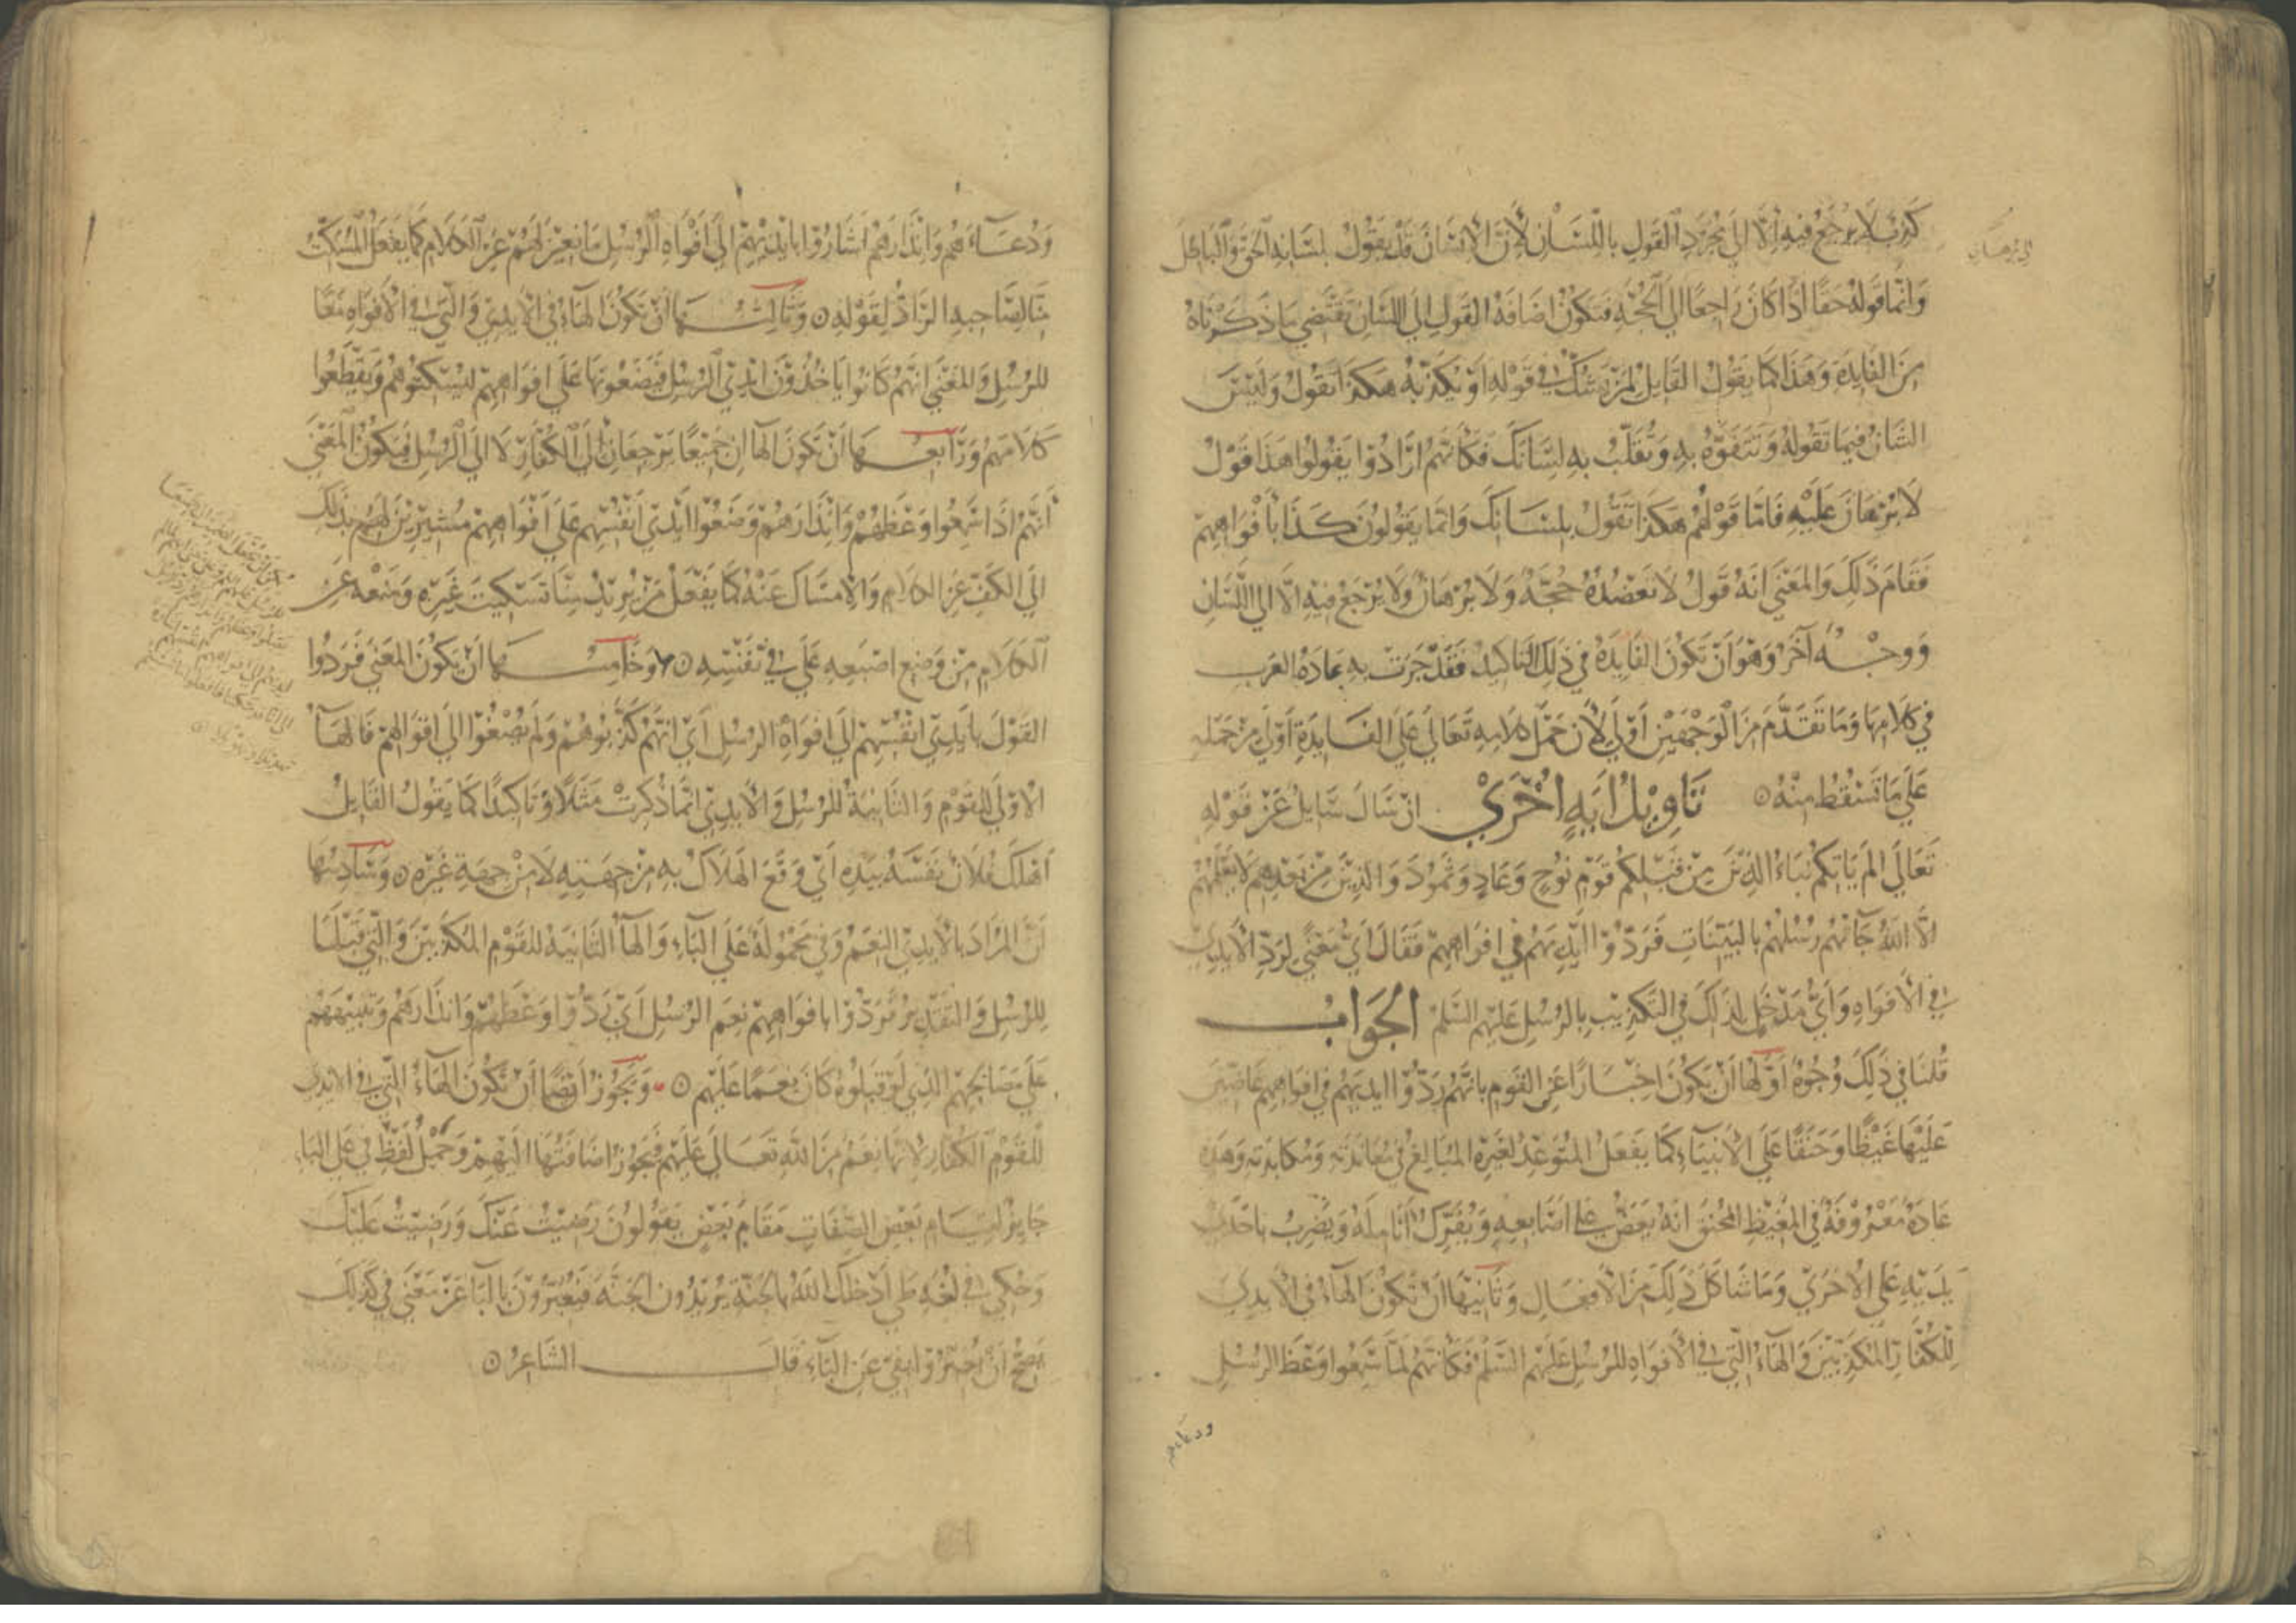 كذب لا يرجع فيه الا الي مجرد القول باللسان لان الانسان قد يقول بلسانه الحق والباطل
وانما قوله حقا اذا كان راجعا الي الحجة فتكون اضافة القول الي اللسان تقتضي ما ذكرناه
من الفايدة وهذا كما يقول القايل لمن يشك في قوله او يكذبه هكذا تقول وليس
الشان فيما تقوله وتتفوه به وتقلب به لسانك فكانهم ارادوا يقولوا هذا قول
لا برهان عليه فاما قولهم هكذا تقول بلسانك وانما يقولون كذا بافواههم
فقام ذلك والمعني انه قول لا تعضده حجة ولا برهان ولا يرجع فيه الا الي اللسان
ووجه آخر وهو ان تكون الفايدة في ذلك التاكيد فقد جرت به عادة العرب
في كلامها وما تقدم من الوجهين اولي لان حمل كلامه تعالي علي الفايدة اولي من حمله
علي ما تسقط منه ن تاويل اية اخري ان سال سايل عن قوله
تعالي الم ياتكم نباء الذين من قبلكم قوم نوح وعاد وثمود والذين من بعدهم لا يعلمهم
الا الله جآتهم رسلهم بالبينات فردوا ايديهم في افواههم فقال اي معني لرد الايدي
في الافواه واي مدخل لذلك في التكذيب بالرسل عليهم السلم الجواب
قلنا في ذلك وجوه اولها ان يكون اخبارا عن القوم بانهم ردوا ايديهم في افواههم عاضين
عليها غيظا وحنقا علي الانبيآء كما يفعل المتوعد لغيره المبالغ في معاندته ومكايدته وهذه
عادة معروفة في المغيظ المحنق انه يعض علي اصابعه ويفرك انامله ويضرب باحدي
يديه علي الاخري وما شاكل ذلك من الافعال وثانيها ان تكون الهآء في الايدي
للكفار المكذبين والهآء التي في الافواه للرسل عليهم السلم فكانهم لما سمعوا وعظ الرسل
ودعاءهم
ودعآءهم وانذارهم اشاروا بايديهم الي افواه الرسل مانعين لهم عن الكلام كما يفعل المسكت
منا لصاحبه الراد لقوله ن وثالثها ان تكون الهآء في الايدي والتي في الافواه معا
للرسل والمعني انهم كانوا ياخذون ايدي الرسل فيضعونها علي افواههم ليسكتوهم ويقطعوا
كلامهم ورابعها ان تكون الهآان جميعا يرجعان الي الكفار لا الي الرسل فيكون المعني
انهم اذا سمعوا وعظهم وانذارهم وضعوا ايدي انفسهم علي افواههم مشيرين لهم بذلك
الي الكف عن الكلام والامساك عنه كما يفعل من يريد منا تسكيت غيره ومنعه عن
الكلام من وضع اصبعه علي في نفسه ن وخامسها ان يكون المعني فردوا
القول بايدي انفسهم الي افواه الرسل اي انهم كذبوهم ولم يصغوا الي اقوالهم فالهآ
الاولي للقوم والثانية للرسل والايدي انما ذكرت مثلا وتاكيدا كما يقول القايل
اهلك فلان نفسه بيده اي وقع الهلاك به من جهته لا من جهة غيره ن وسادسها
ان المراد بالايدي النعم وفي محمولة علي البآء والهآ الثانية للقوم المكذبين والتي قبلها
للرسل والتقدير فردوا بافواههم نعم الرسل اي ردوا وعظهم وانذارهم وتنبيههم
علي مصالحهم الذي لو قبلوه كان نعما عليهم ن ويجوز ايضا ان تكون الهآء التي في الايدي
للقوم الكفار لانها نعم من الله تعالي عليهم فيجوز اضافتها اليهم وحمل لفظ في علي البآء
جايز لقيام بعض الصفات مقام بعض يقولون رضيت عنك ورضيت عليك
وحكي في لغة طي ادخلك الله بالجنة يريدون الجنة فيعبرون بالبآ عن معني في كذلك
يصح ان يعبروا بفي عن البآء قال الشاعر ن